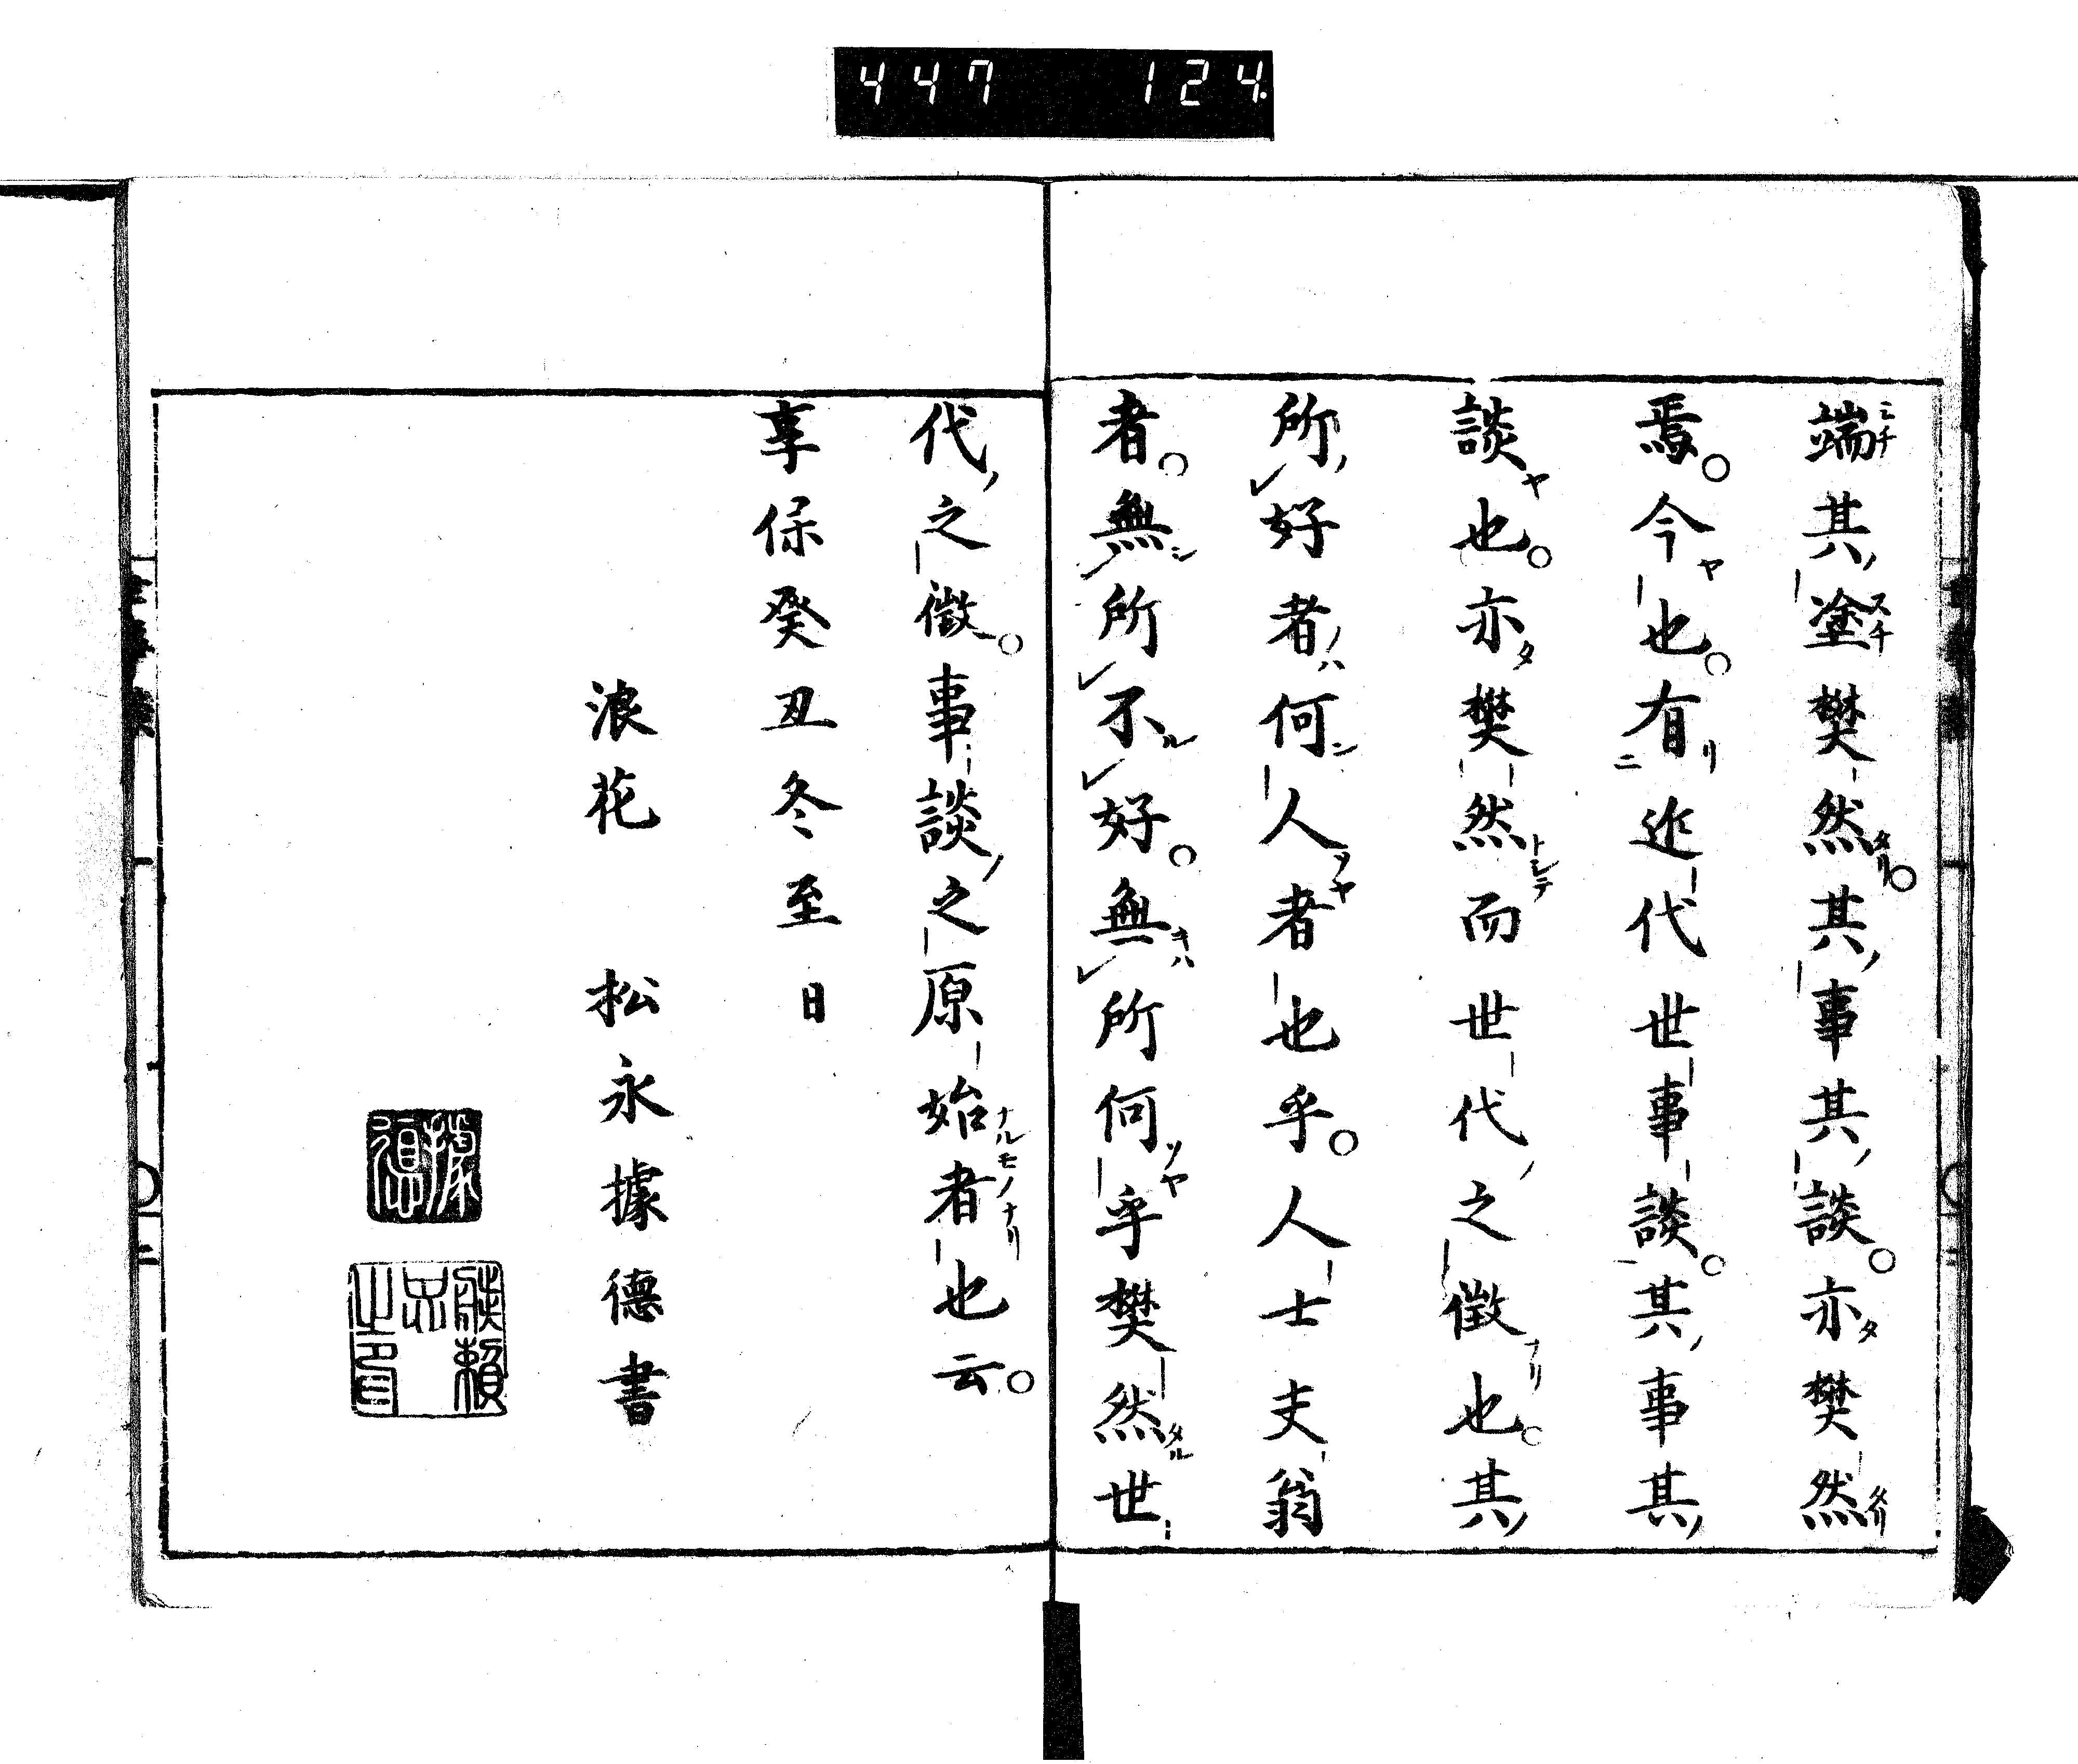 447 124
端其塗樊然其事其談亦樊然
焉今也有近代世事談其事其
談也亦樊然而世代之徴也其
所好者何人者也乎人士夫翁
者無所不好無所何乎樊然世
代之徴事談之原始者也云
享保癸丑冬至日
浪花 松永據德書